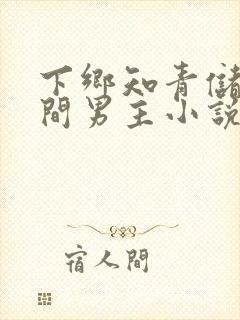 下鄉知青儲
間男主小說
宿人間